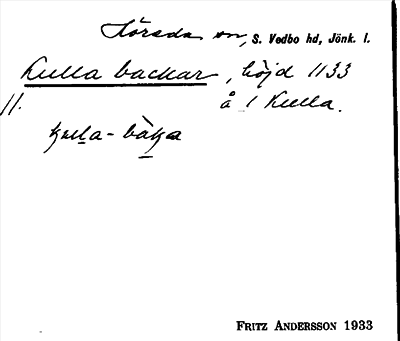 Hörsda sn, S. Vedbo hd, Jönk. l.
Kulla backar, höjd 1133
11. å 1 Kulla.
kulla-bàka
FRITZ ANDERSSON 1933